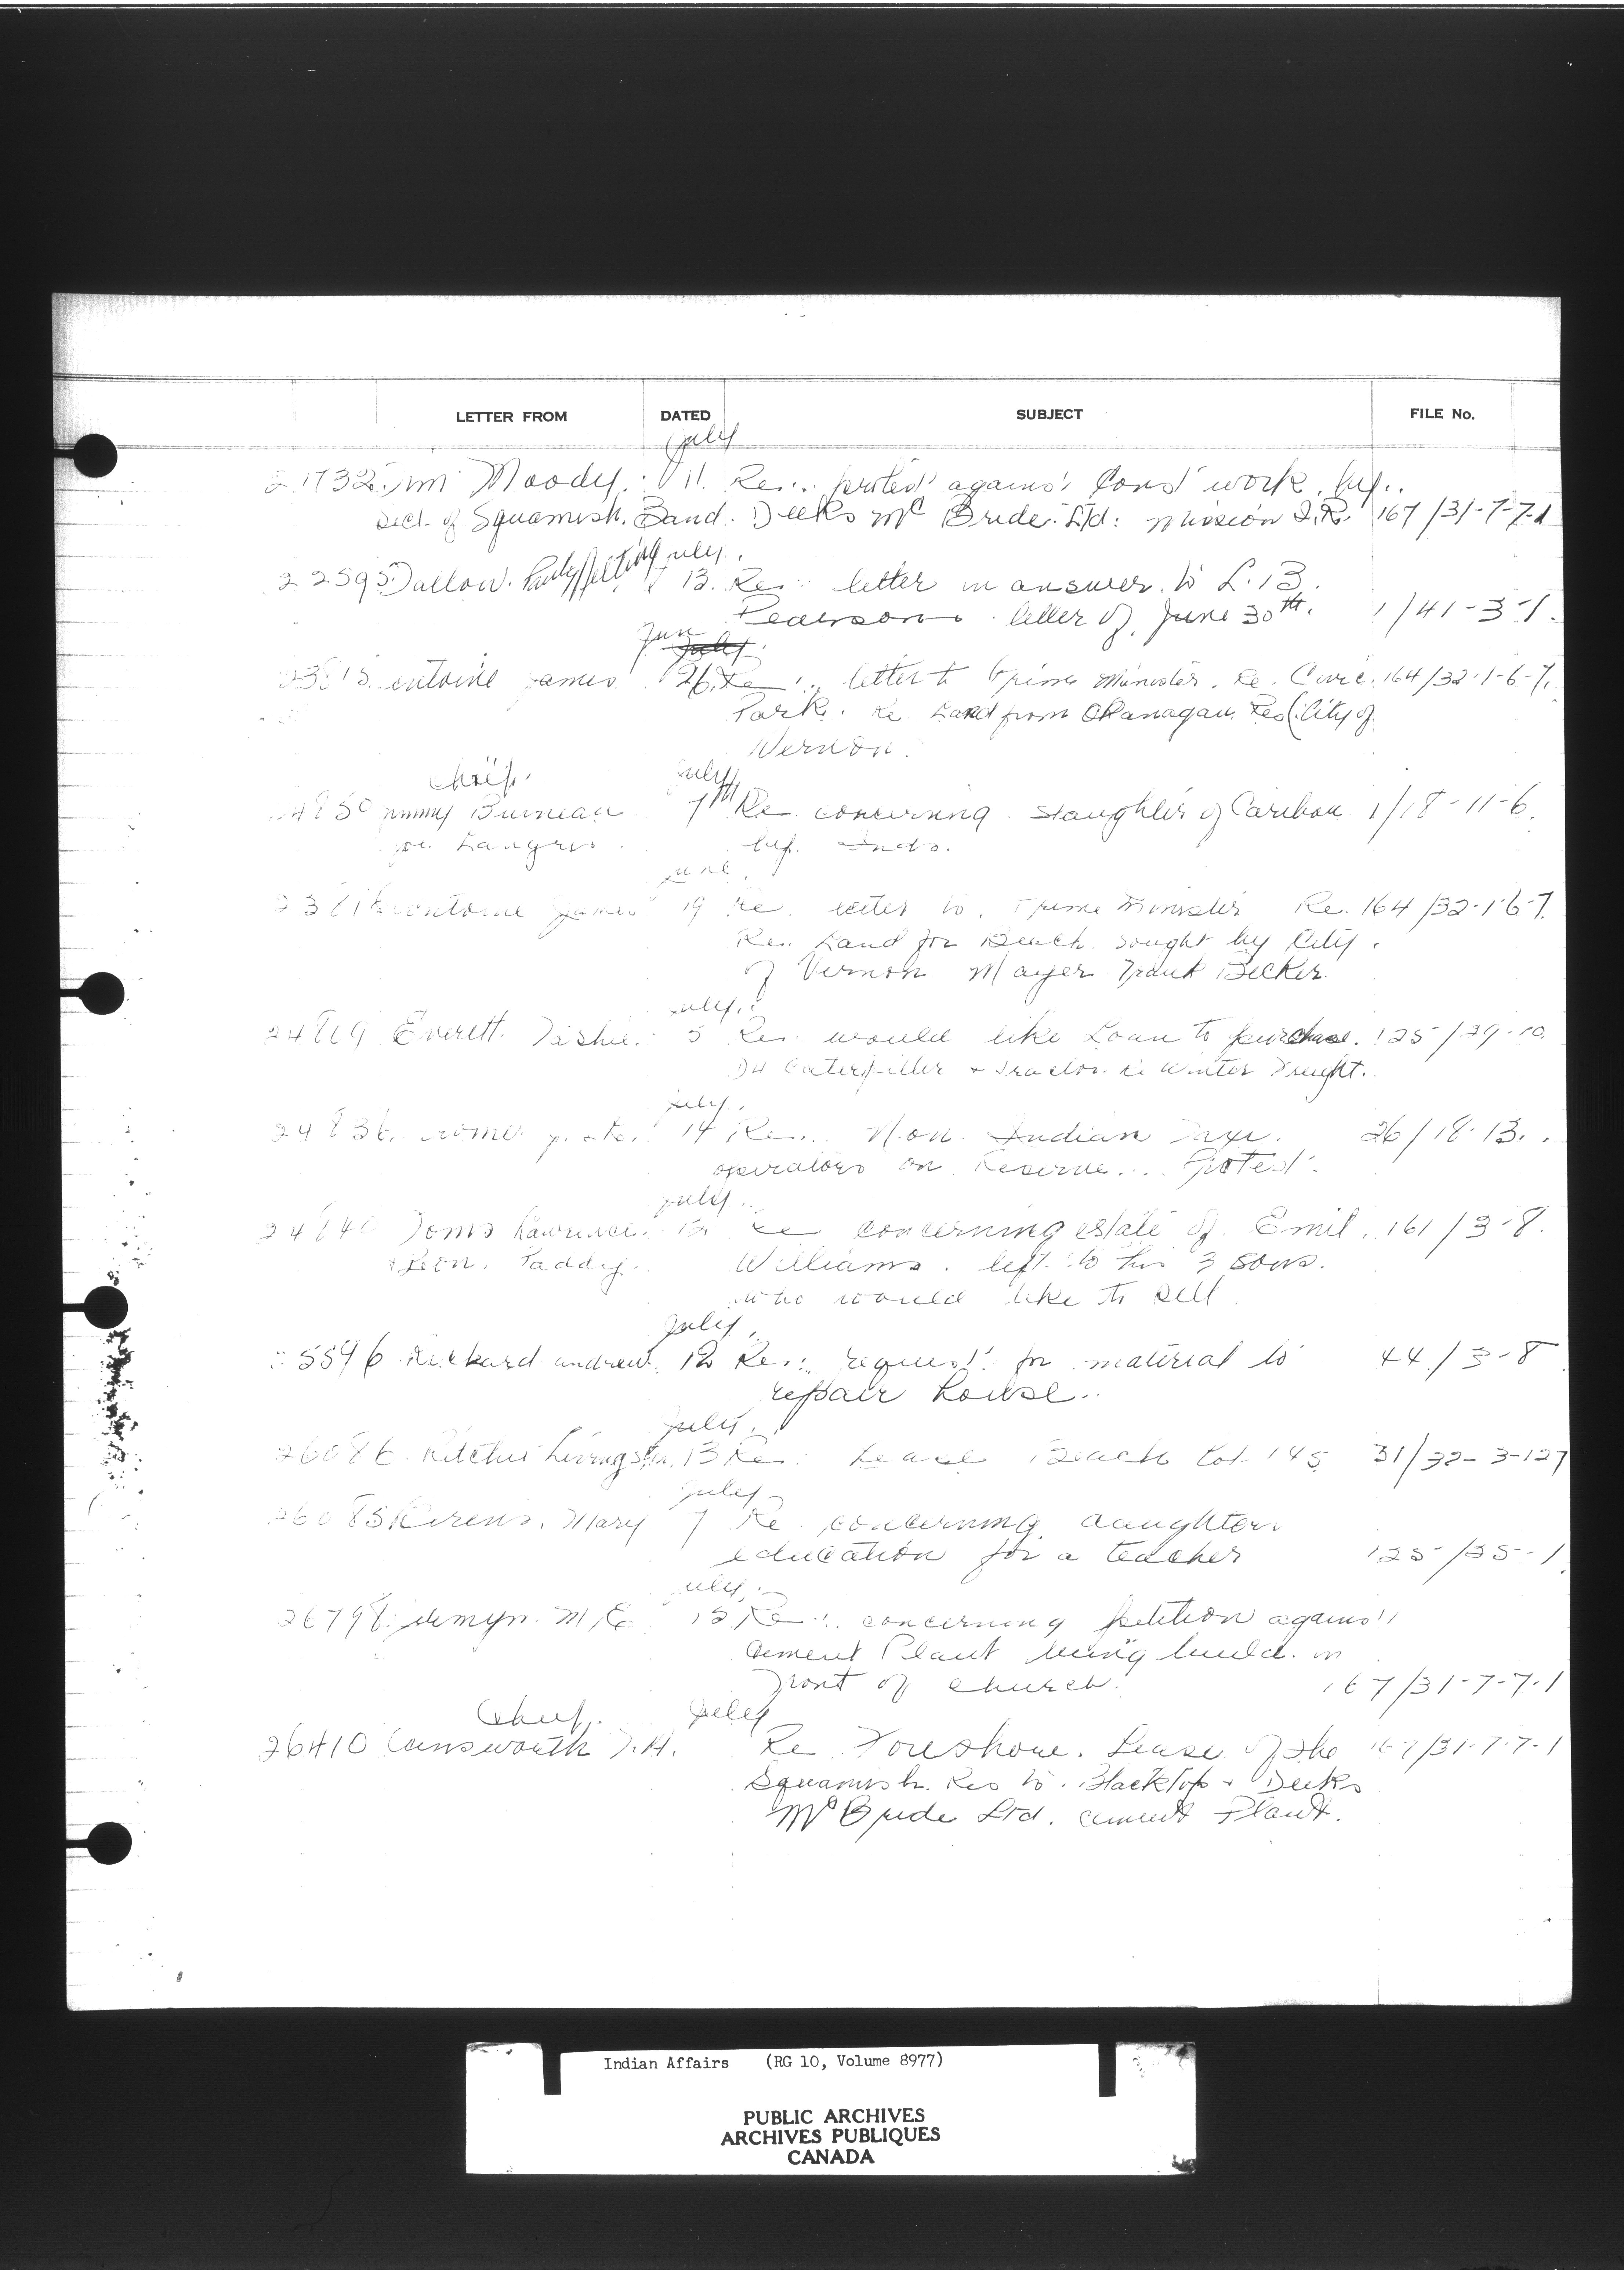 LETTER FROM DATED SUBJECT FILE No.
July
Moody. 11. Re: protest against Const work by
Sect. of Squamish Band. Deeks McBride Ltd: Mission I.R. 167/31-7-7-1
July
22595 13. Re: letter in answer to L.B.
Pearson letter of June 30th. 1/41-3-1.
Jun
July
James 26. Re: letter to Prime Minister. Re. Civic 164/32-1-6-7.
Park. Re. Land from Okanagan Res (City of
Vernon.
Chief July
Bruneau 7th Re concerning slaughter of Caribou 1/18-11-6.
by Inds.
June
James 19 Re. letter to Prime Minister Re. 164/32-1-6-7.
Re. Land for Beach sought by City
of Vernon Mayer Frank Becker
July
24819 Everett Leslie. 5 Re. would like Loan to purchase. 125/29-10.
D4 Caterpiller & Tractor Winter Freight.
July
24836 14 Re... Non Indian Taxi 26/18-13.
operators on Reserve... Protest.
July
24840 Toms Lawrence. Re concerning estate of Emil 161/3-8.
& Leon. Paddy. Williams. left to his 3 sons.
who would like to sell
July
5596 Rickard Andrew. 12 Re: request for material to 44/3-8
repair house.
July
26086 Ritchie Livingston 13 Re: Lease Beach Lot 145 31/32-3-127
July
26085 Mary 7 Re concerning daughter
education for a teacher 125/25-1
July
26798 M.E. 15 Re: concerning petition against
Cement Plant being build in
front of church. 167/31-7-7-1
Chief July
26410 Re Foreshore Lease of the 167/31-7-7-1
Squamish Res to Blacktop & Deeks
McBride Ltd. cement Plant.
Indian Affairs (RG 10, Volume 8977)
PUBLIC ARCHIVES
ARCHIVES PUBLIQUES
CANADA